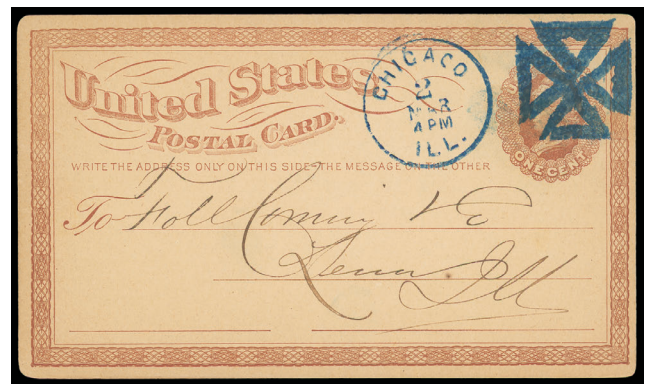 United States
POSTAL CARD.
CHICAGO
2
MAR
4 PM
ILL.
ONE CENT
WRITE THE ADDRESS ONLY ON THIS SIDE-THE MESSAGE ON THE OTHER
To
Ill